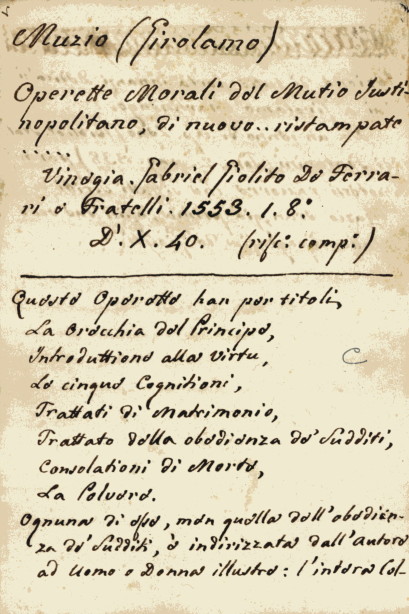 Muzio (Girolamo)
Operette Morali del Mutio Justi-
nopolitano, di nuovo.. ristampate
.....
Vinegia. Gabriel Giolito De Ferra-
ri e Fratelli. 1553. 1. 8.°
D'. X. 40. (rifc.° comp.°)
Queste Operette han per titoli,
La Orecchia del Principe,
Introduttione alla virtu,
Le cinque Cognitioni,
Trattati di Matrimonio,
Trattato della obedienza de' Sudditi,
Consolationi di Morte,
La Polvere.
C
Ognuna di esse, men quella dell'obedien-
za de' Sudditi, è indirizzata dall'Autore
ad Uomo o Donna illustre: l'intera Col-